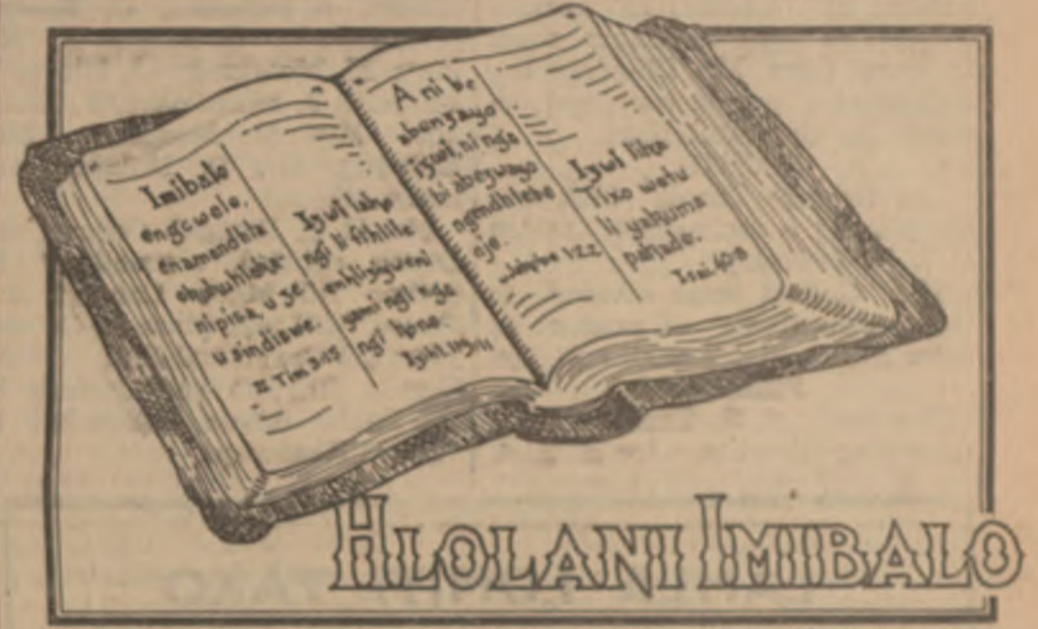 Imibalo
engcwele,
enamandhla
okukuhlaka-
nipisa, u ze
u sindiswe.
II Tim 3:15
Izwi lako
ngi li fihlile
enhliziyweni
yami ngi nga
ngi hone.
Izihl. 119:11
A ni be
abenzayo
izwi, ni nga
bi abezwayo
ngendhlebe
nje.
Jakobe 1:22
Izwi lika
Tixo wetu
li yakuma
pakade.
Isai. 40:8
HLOLANI IMIBALO